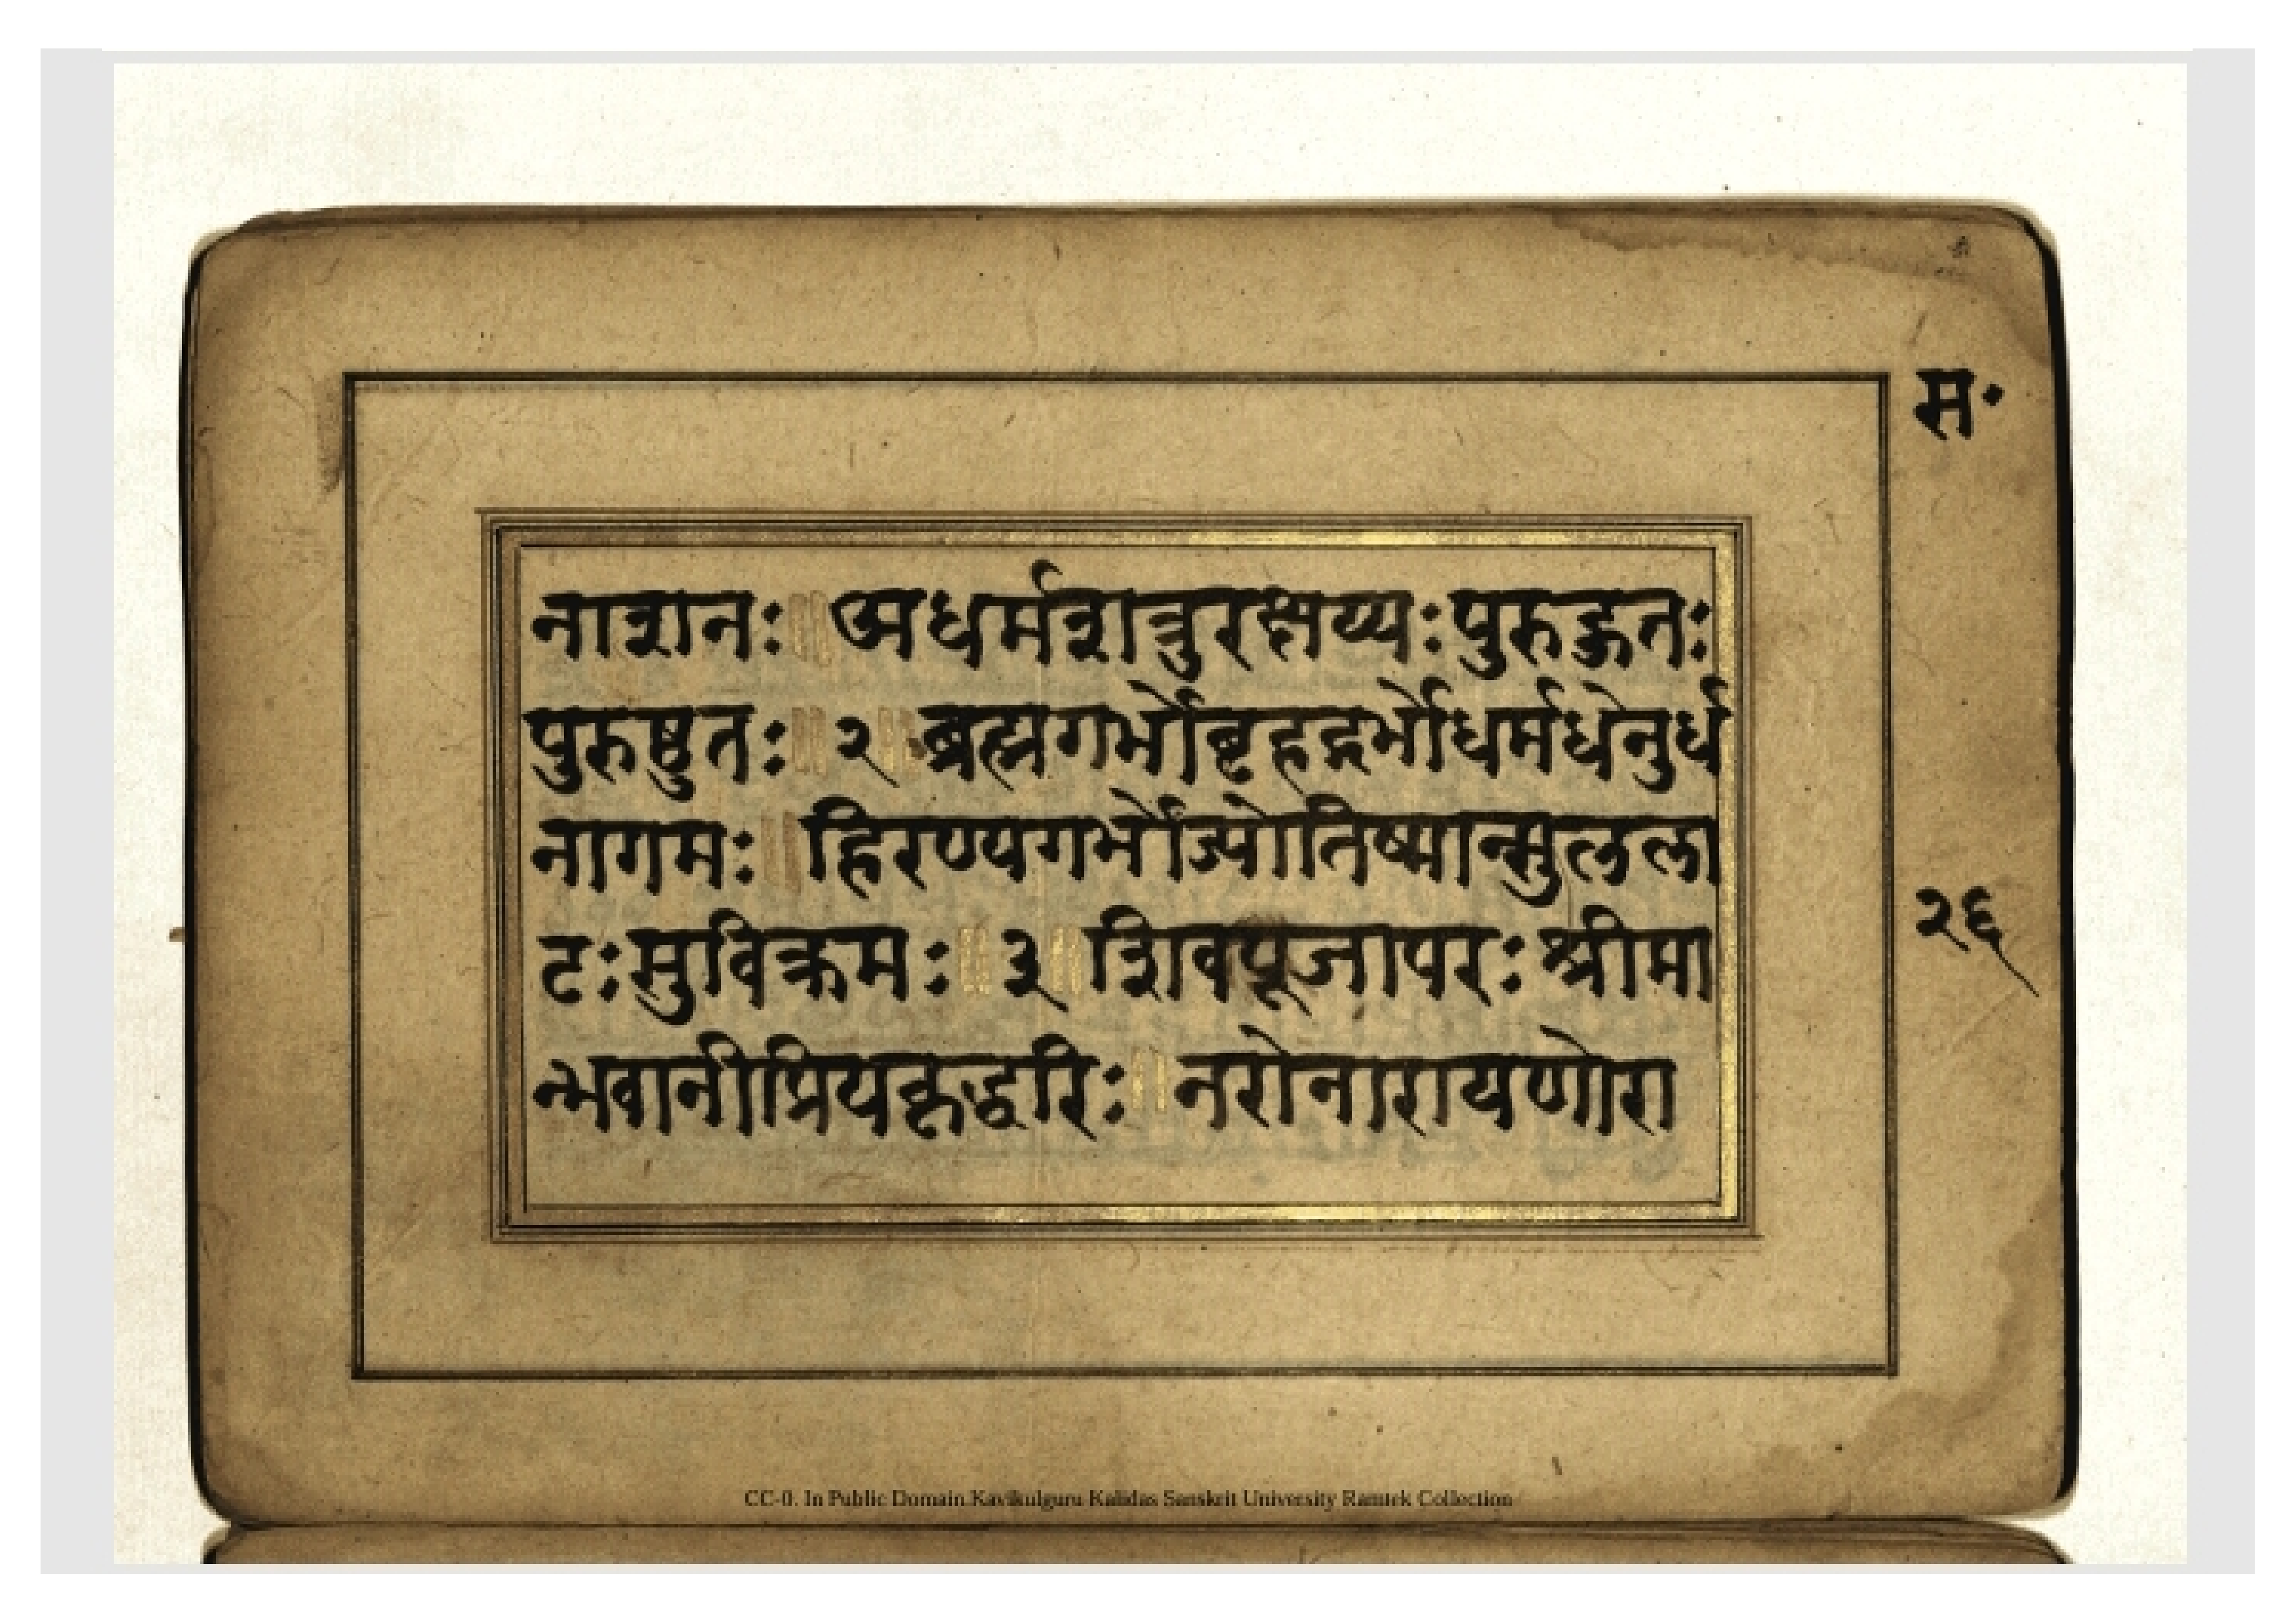 स॰
नाशनः ॥ अधर्मशत्रुरक्षय्यः पुरुहूतः
पुरुष्टुतः ॥ २ ॥ ब्रह्मगर्भो बृहद्गर्भो धर्मधेनुर्ध
नागमः ॥ हिरण्यगर्भो ज्योतिष्मान्सुलला
२६
टः सुविक्रमः ॥ ३ ॥ शिवपूजापरः श्रीमा
न्भवानीप्रियकृद्धरिः ॥ नरो नारायणो रा
CC-0. In Public Domain.Kavikulguru Kalidas Sanskrit University Ramtek Collection